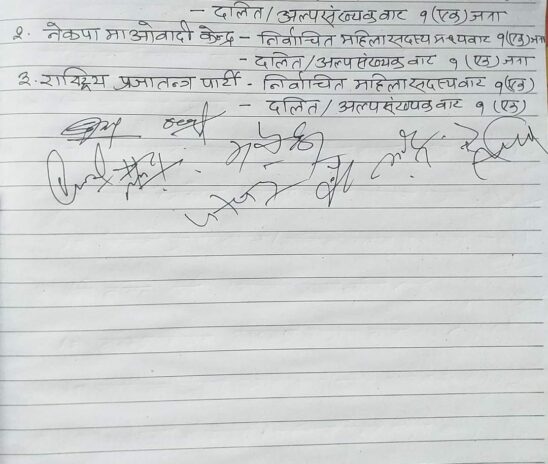 - दलित/अल्पसंख्यकबाट १ (एक) जना
२. नेकपा माओवादी केन्द्र - निर्वाचित महिला सदस्य मध्यबाट १(एक) जना
- दलित/अल्पसंख्यकबाट १ (एक) जना
३. राष्ट्रिय प्रजातन्त्र पार्टी - निर्वाचित महिला सदस्यबाट १(एक)
- दलित/अल्पसंख्यकबाट १ (एक)